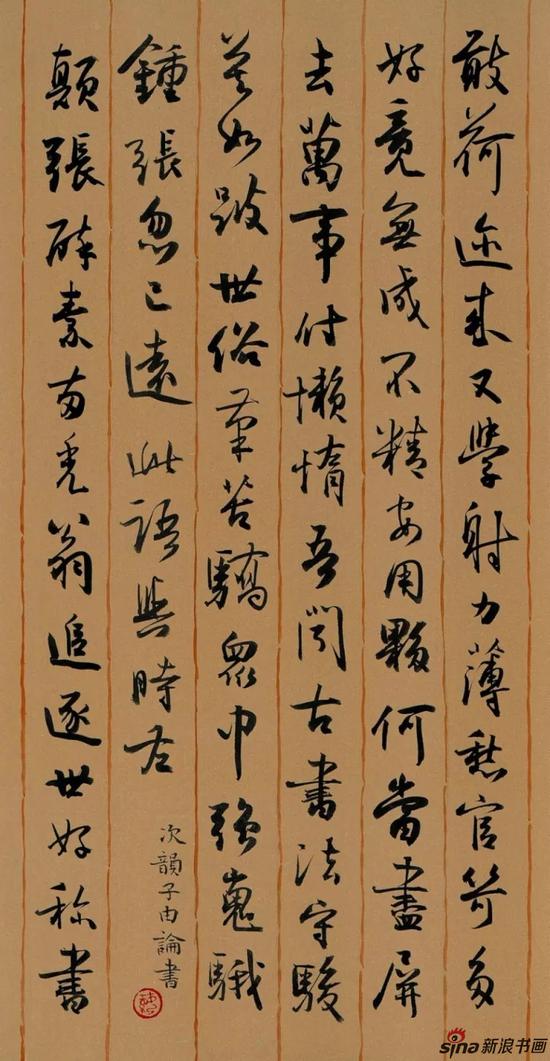 敢荷迩来又學射力薄愁官笴多
好竟無成不精安用夥何當盡屏
去萬事付懶惰吾聞古書法守駿
莫如跛世俗筆苦驕眾中強嵬騀
鍾張忽已遠此語與時左
次韻子由論書
顛張醉素兩禿翁追逐世好称書
sina新浪书画